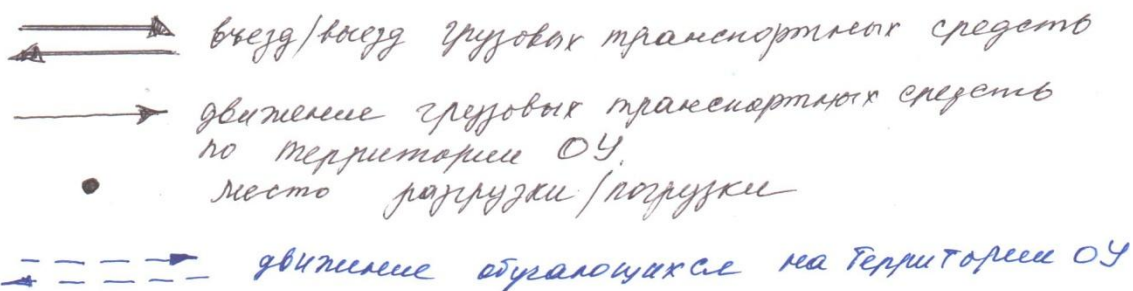 въезд/выезд грузовых транспортных средств
движение грузовых транспортных средств
по территории ОУ.
место разгрузки/погрузки
движение обучающихся на территории ОУ